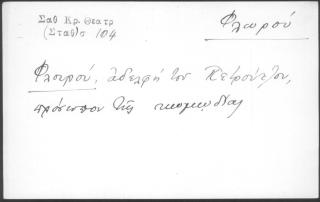 Σαθ Κρ. Θεατρ
(Σταθ)σ 104
Φλωρού
Φλουρού, ἀδελφή του Πετρούτζου,
πρόσωπον τῆς κωμῳδίας